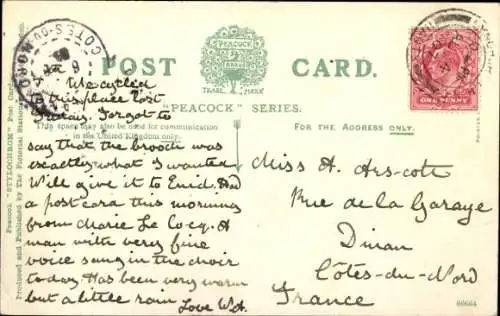 POST CARD.
PEACOCK
TRADE MARK
"PEACOCK" SERIES.
This space may also be used for communication
in the United Kingdom only.
FOR THE ADDRESS ONLY.
We cycled
to this place last
Friday. Forgot to
say that the brooch was
exactly what I wanted
Will give it to Enid. Had
a post card this morning
from Marie Le Cocq. A
man with very fine
voice sang in the choir
today. Has been very warm
but a little rain Love W.A.
Miss H. Arscott
Rue de la Garaye
Dinan
Côtes-du-Nord
France
ONE PENNY
COTES-DU-NORD
Peacock "STYLOCHROM" Post Card.
Produced and Published by The Pictorial Stationery
66664